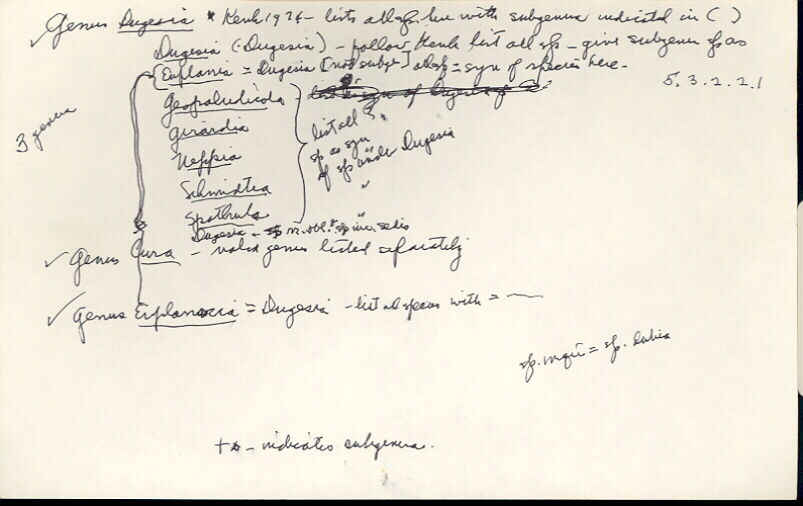 ✓ Genus Dugesia * Kenk 1974 - lists all sp. here with subgenus indicated in ( )
Dugesia (Dugesia) - follow Kenk list all sp - give subgenus sp as
Euplanaria = Dugesia [not subg.] all sp = syn of species here.
5.3.2.2.1
3 genera
Geopaludicola
Girardia
Neppia
Schmidtea
Spathula
list all
sp as syn
of sp under Dugesia
Dugesia - sp inc. sedis
✓ Genus Cura - valid genus listed separately
✓ Genus Euplanaria = Dugesia - list all species with = —
sp. inqui = sp. dubia
+ * - indicates subgenera.